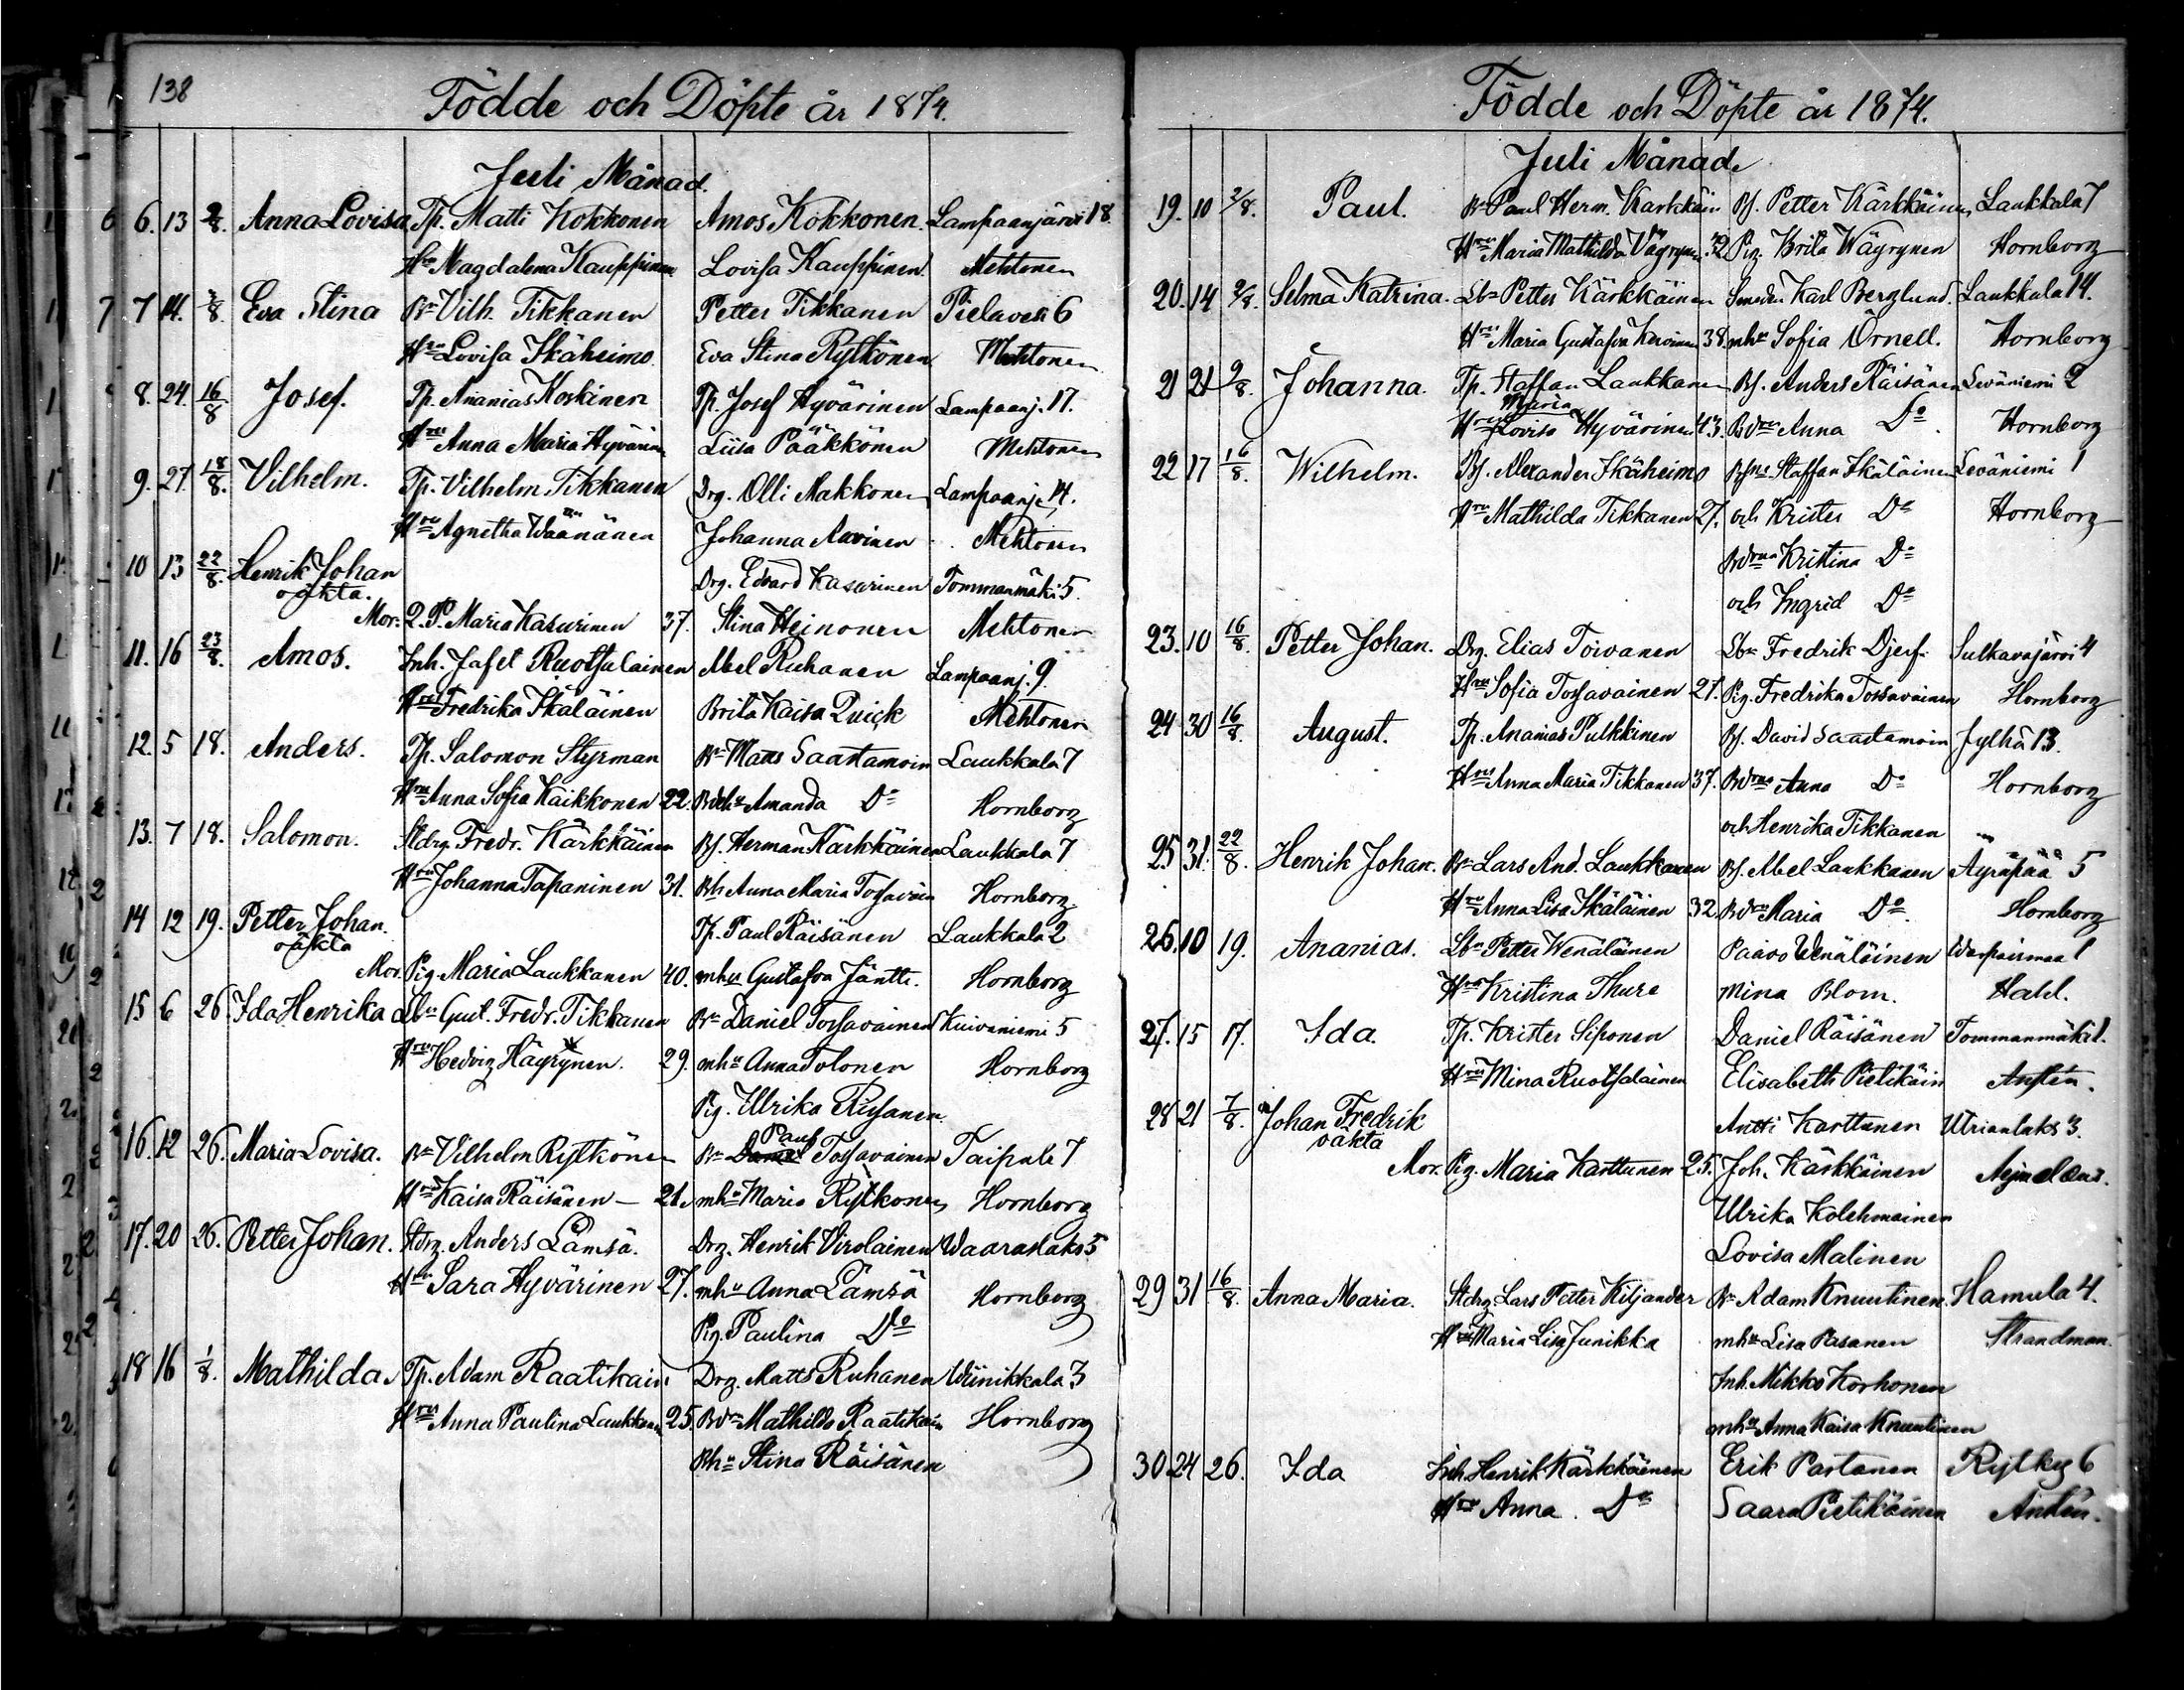 138
Födde och Döpte år 1874.
Juli Månad.
6. 13 2/8. Anna Lovisa Tp. Matti Kokkonen Amos Kokkonen. Lampaanjärvi 18.
Hru Magdalena Kauppinen Lovisa Kauppinen. Mehtonen
7 14. 2/8. Eva Stina Bn Vilh. Tikkanen Petter Tikkanen Pielavesi 6
Hru Lovisa Skäheimo Eva Stina Rytkönen Mehtonen
8. 24. 16/8 Josef. Tp. Ananias Koskinen Tp. Josef Hyvärinen Lampaanj. 17.
Hru Anna Maria Hyvärin Liisa Pääkkönen Mehtonen
9. 27. 18/8. Vilhelm. Tp. Vilhelm Tikkanen Drg. Olli Makkonen Lampaanj. 14.
Hru Agnetha Wäänänen Johanna Aavinen Mehtonen
10 13 22/8. Henrik Johan Drg. Edvard Kasurinen Tommanmäki 5.
oäkta.
Mor. Q. P. Maria Kasurinen 37. Stina Heinonen Mehtonen
11. 16 23/8. Amos. Inh. Jafet Ruotsalainen Abel Ruhanen Lampaanj. 9.
Hru Fredrika Skäläinen Brita Kaisa Quick Mehtonen
12. 5 18. Anders. Tp. Salomon Styrman Bn Matts Saastamoin Laukkala 7
Hru Anna Sofia Kaikkonen 22. Amanda Do Hornborg
13. 7 18. Salomon. Stdrg Fredr. Kärkkäinen Bs. Herman Kärkkäinen Laukkala 7
Hru Johanna Tapaninen 31. Bh Anna Maria Tossavain Hornborg
14 12 19. Petter Johan. Tp. Paul Räisänen Laukkala 2
oäkta
Mor. Pig. Maria Laukkanen 40. mhu Gustafva Jäntti. Hornborg
15 6 26 Ida Henrika Lbn Gust. Fredr. Tikkanen Bn Daniel Tossavainen Kuivaniemi 5
Hru Hedvig Häyrynen. 29. mhu Anna Tolonen Hornborg
Pig. Ulrika Rusanen
16. 12 26. Maria Lovisa. Bn Vilhelm Rytkönen Bn Daniel Paul Tossavainen Taipale 7
Hru Kaisa Räisänen 21. mhu Maria Rytkonen Hornborg
17. 20 26. Petter Johan. Stdrg. Anders Lämsä. Drg. Henrik Virolainen Waaraslaks 5
Hru Sara Hyvärinen 27. mhu Anna Lämsä Hornborg
Pig. Paulina Do
18 16 1/8. Mathilda. Tp. Adam Raatikain Drg. Matts Ruhanen Wiinikkala 3
Hru Anna Paulina Laukkanen 25. Mathilda Raatikain Hornborg
Bhu Stina Räisänen
Födde och Döpte år 1874.
Juli Månad.
19. 10 2/8. Paul. Bn Paul Herm. Karkkäin Bs. Petter Kärkkäinen Laukkala 7
Hru Maria Mathilda Vägrynen 32 Pig. Brita Wäyrynen Hornborg
20. 14 2/8. Selma Katrina. Lbn Petter Kärkkäinen Smeden Karl Berglund. Laukkala 14.
Hru Maria Gustafva 38. mhu Sofia Örnell. Hornborg
21 21 9/8. Johanna. Tp. Staffan Laukkanen Bs. Anders Räisänen Leväniemi 2
Hru Maria Lovisa Hyvärinen 43. Anna Do Hornborg
22 17 16/8. Wilhelm. Bs. Alexander Skäheimo Staffan Skäläinen Leväniemi 1
Hru Mathilda Tikkanen 27. och Krister Do Hornborg
Kristina Do
och Ingrid Do
23. 10 16/8. Petter Johan. Drg. Elias Toivanen Lbn Fredrik Djerf. Sulkavajärvi 4
Hru Sofia Tossavainen 27. Pig. Fredrika Tossavainen Hornborg
24 30 16/8. August. Tp. Ananias Pulkkinen Bs. David Saastamoin Jylhä 13.
Hru Anna Maria Tikkanen 37. Anna Do Hornborg
och Henrika Tikkanen
25 31. 22/8. Henrik Johan. Bn Lars And. Laukkanen Bs. Abel Laukkanen Äyräpää 5
Hru Anna Lisa Skäläinen 32. Maria Do. Hornborg
26. 10 19. Ananias. Lbn Petter Wenäläinen Paavo Wenäläinen 1
Hru Kristina Thure Mina Blom. Hahl.
27. 15 17. Ida. Tp. Krister Siponen Daniel Räisänen Tommanmäki 1.
Hru Mina Ruotsalainen Elisabeth Pietikäin
28 21 7/8. Johan Fredrik Antti Karttunen Utrianlaks 3.
oäkta
Mor. Pig. Maria Karttunen 25. Joh. Kärkkäinen
Ulrika Kolehmainen
Lovisa Malinen
29 31 16/8. Anna Maria. Stdrg Lars Petter Kiljander Bn Adam Knuutinen. Hamula 4.
Hru Maria Lisa Junikka mhu Lisa Pasanen Strandman.
Inh. Mikko Korhonen
mhu Anna Kaisa Knuutinen
30 24 26. Ida Inh. Henrik Kärkkäinen Erik Partanen Rytky 6
Hru Anna. Do Saara Pietikäinen